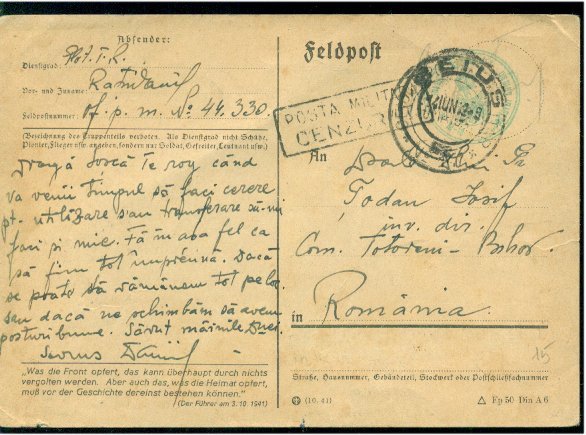 Absender:
Dienstgrad:
Vor- und Zuname:
of. p. m. No 44.330
Feldpostnummer:
(Bezeichnung des Truppenteils verboten. Als Dienstgrad nicht Schütze,
Pionier, Flieger usw. angeben, sondern nur Soldat, Gefreiter, Leutnant usw.)
Dragă te rog când
va veni timpul să faci cerere
pt. utilizare sau transferare să-mi
faci și mie. Fă m așa fel ca
să fim tot împreună. Dacă
se poate să rămânem tot pe loc
sau dacă ne schimbăm să avem
posturi bune. Sărut mâinile
"Was die Front opfert, das kann überhaupt durch nichts
vergolten werden. Aber auch das, was die Heimat opfert,
muß vor der Geschichte dereinst bestehen können."
(Der Führer am 3. 10. 1941)
Feldpost
POSTA MILIT
CENZU
BEIUS
An
Todan Iosif
inv. dir.
Com. Totoreni - Bihor.
in România.
15
Straße, Hausnummer, Gebäudeteil, Stockwerk oder Postschließfachnummer
(10. 41)
Fp 50 Din A 6